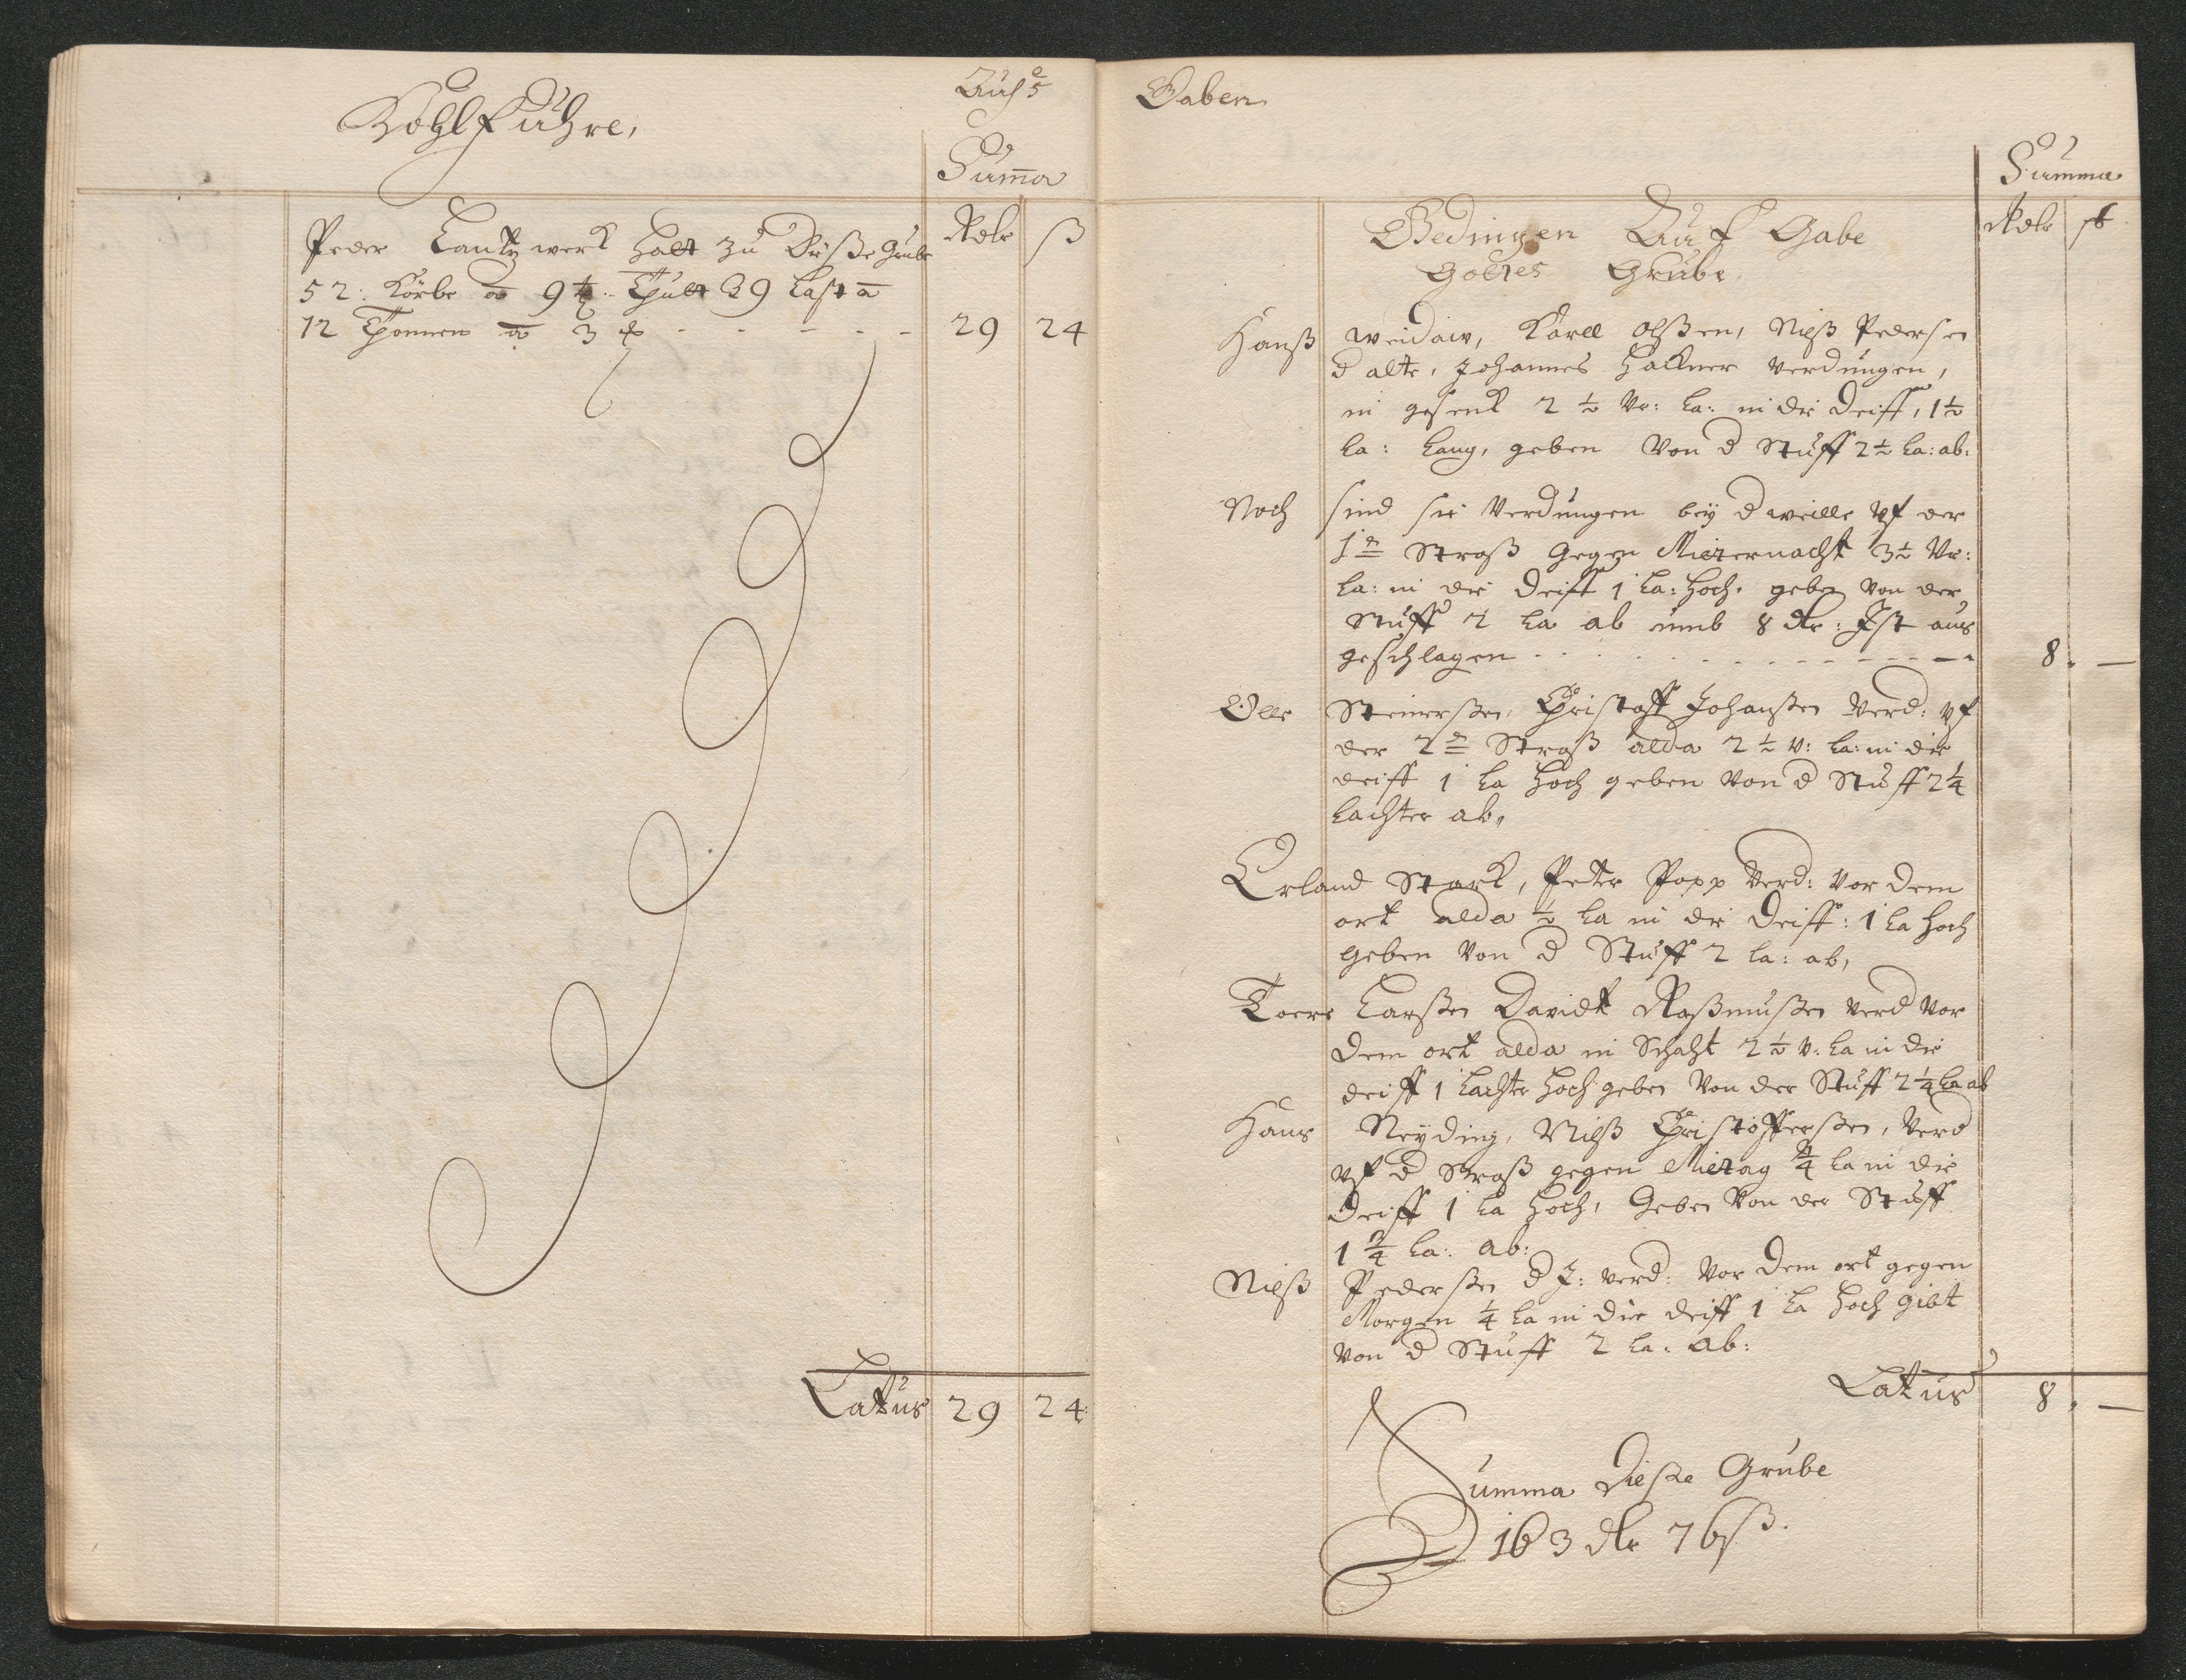 Kohl Führe,
Summa
Rdlr ß
Peder Lantzwerk halt zu Dieße Grube
52: Körbe a 9½ Thult 39 Last a
12 Thonnen a 3 - - - - - 29 24
Latus 29 24:
Gaben
Summa
Rdlr ß
Gedingen Auf Gabe
Gottes Grube
Hanß Weidaw, Karll Olßen, Nielß Pedersen
d alte, Johannes Hackner Verdungen,
in gesenk 2 ½ Vr: La: in die Deiff, 1½
La: Lang, geben Von d Stuff 2½ La: ab:
Noch sind sie Verdungen bey d weille vf der
1e Straß Gegen Mitternacht 3½ Vr:
La: in die Deiff 1 La: hoch, geben Von der
Stuff 2 La ab umb 8 dlr: Ist aus
geschlagen - - - - - - 8. —
Olle Steinerßen, Christoff Johanßen Verd: vf
der 2e Straß alda 2½ V: La: in die
deiff 1 La hoch geben Von d Stuff 2¼
Lachter ab,
Erland Stark, Peter Popp Verd: Vor dem
ort alda ½ La in die Deiff: 1 La hoch
geben Von d Stuff 2 La: ab,
Toere Larßen Davidt Raßmußen Verd Vor
dem ort alda in Schaht 2½ V: La in die
deiff 1 Lachter hoch geben Von der Stuff 2¼ La ab
Hans Neyding, Nielß Christofferßen, Verd
vf d Straß gegen Mitag ¾ La in die
Deiff 1 La hoch, Geben Von der Stuff
1 ¾ La: ab:
Nielß Pederßen d J: Verd: Vor dem ort gegen
Morgen ¼ La in die deiff 1 La hoch gibt
Von d Stuff 2 La: ab:
Latus 8. —
Summa Dieße Grube
163 dlr 76ß.